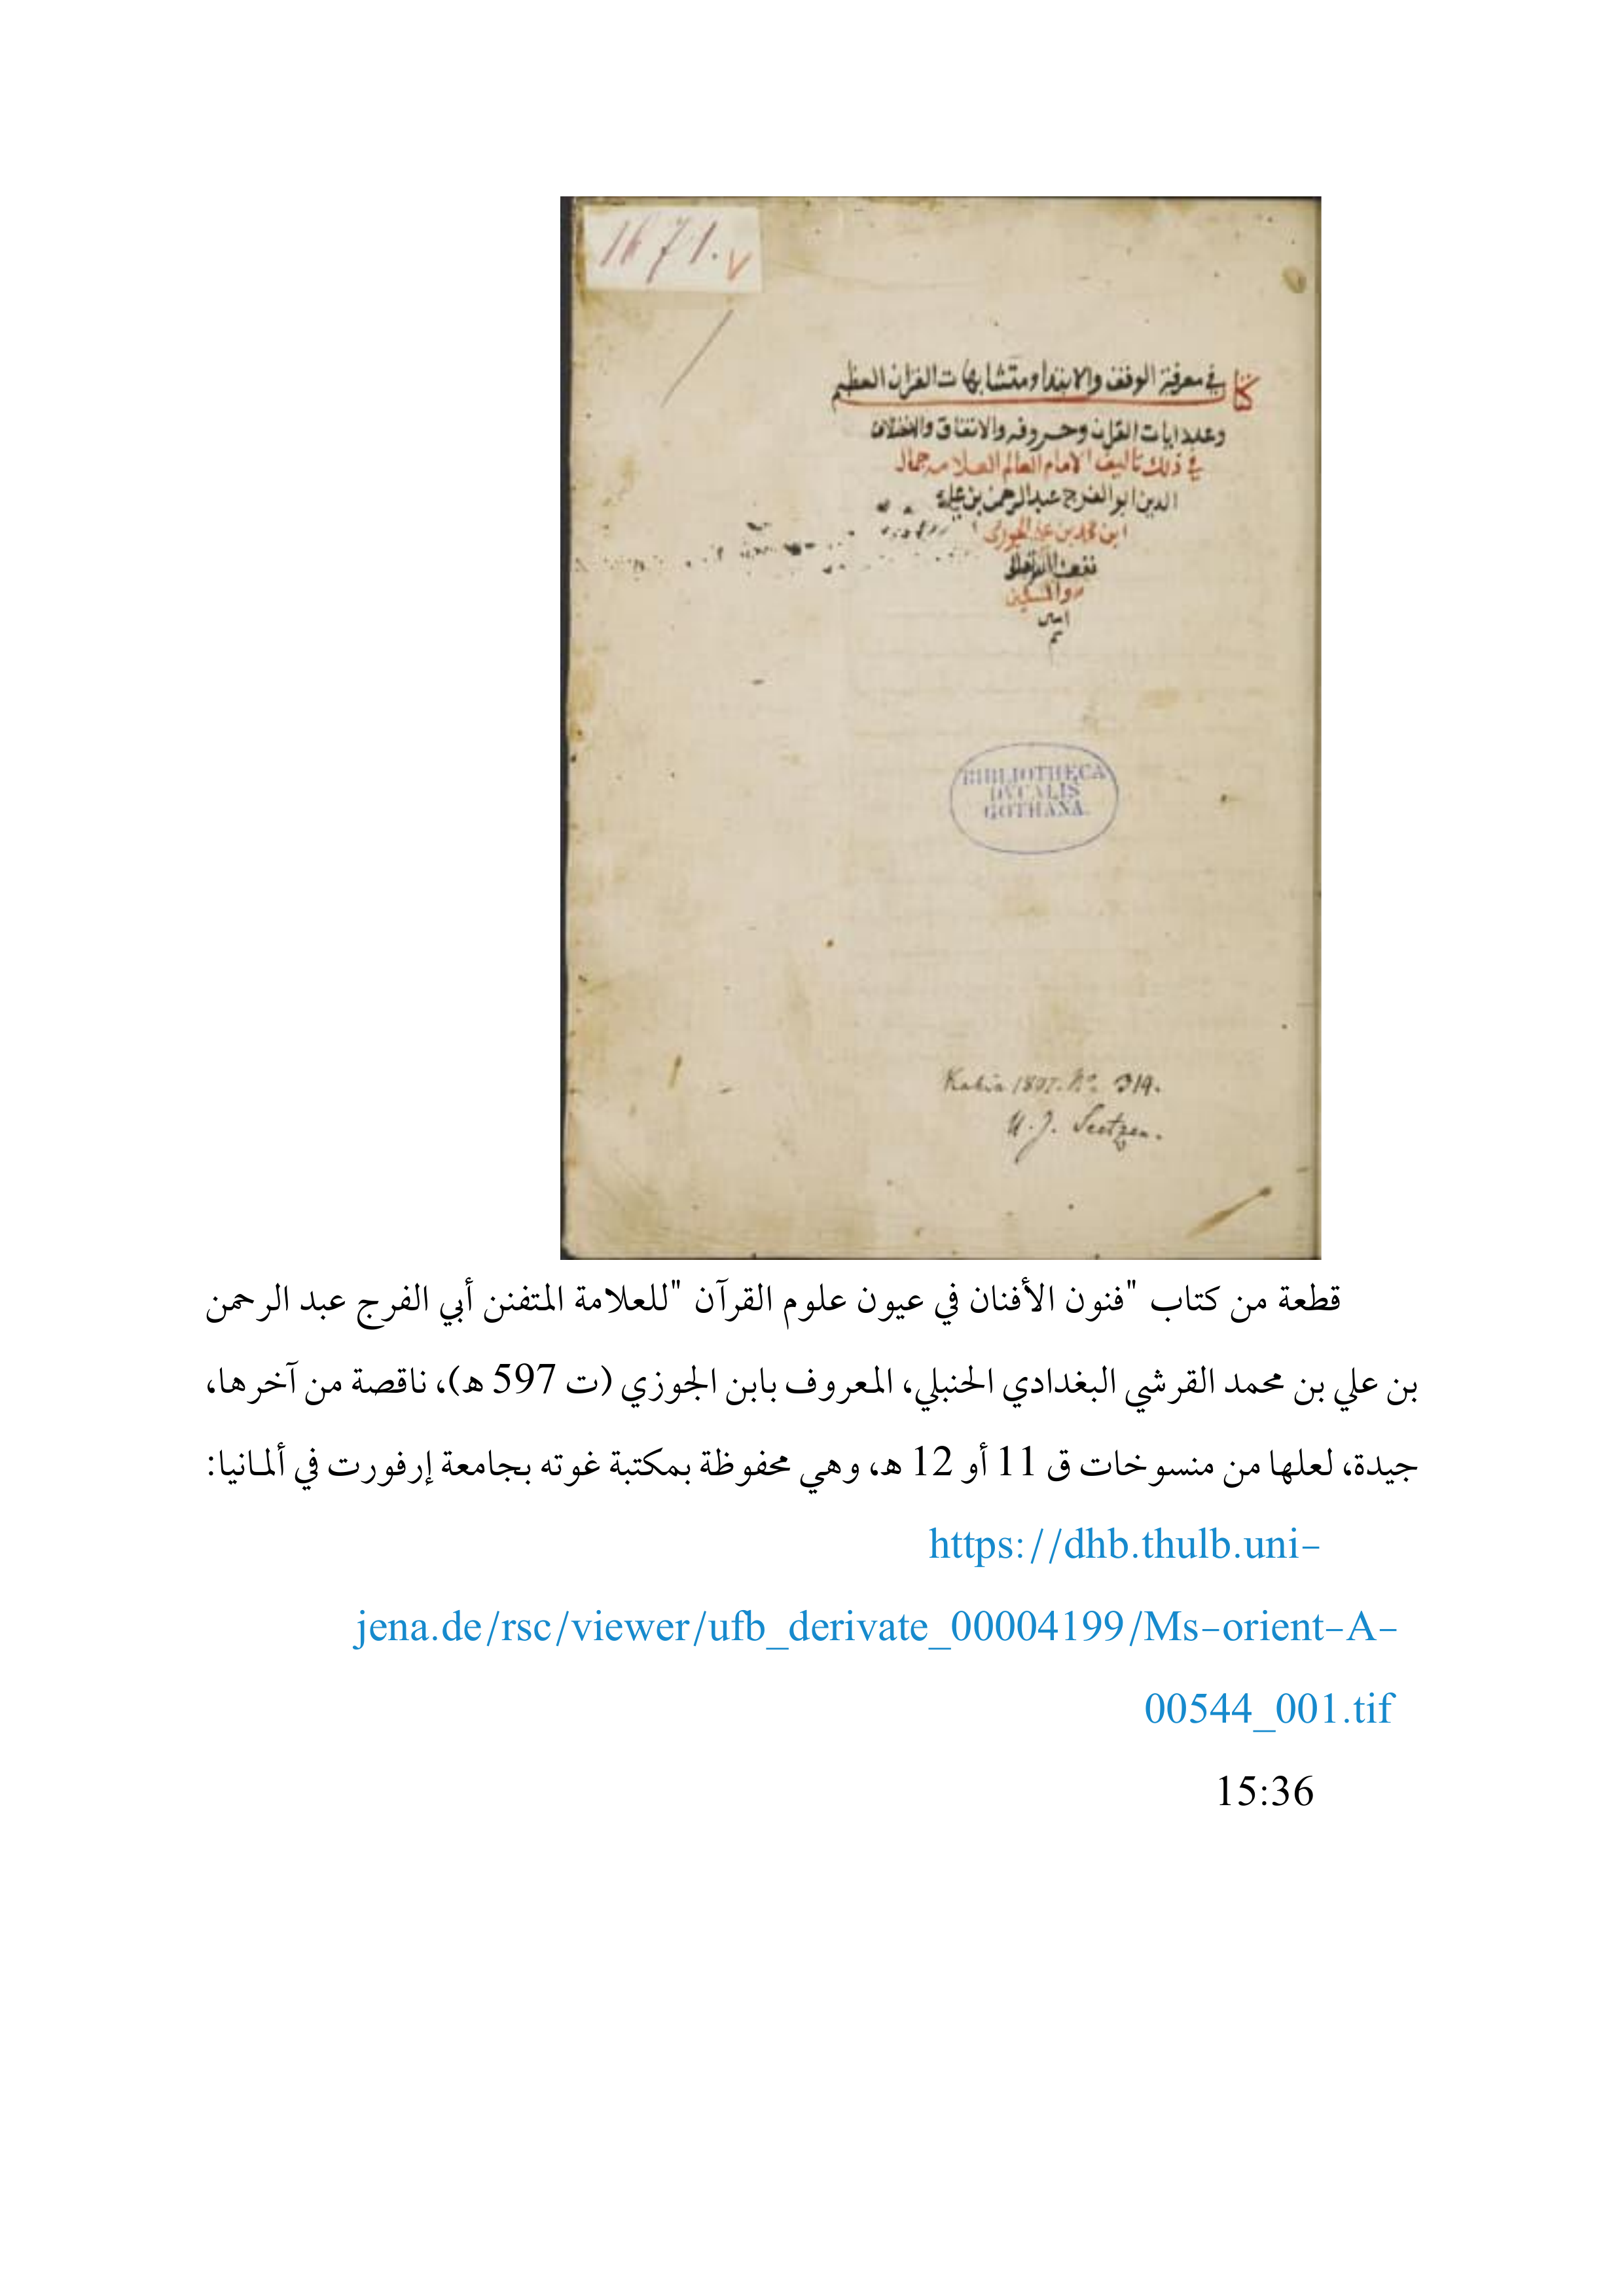 1671.
كتاب في معرفة الوقف والابتدا ومتشابهات القران العظيم
وعدد ايات القران وحروفه والاتفاق والاختلاف
في ذلك تاليف الامام العالم العلامه جمال
الدين ابو الفرج عبد الرحمن بن علي
ابن محمد بن علي الجوزي
نفعنا الله تعالى
والمسلمين
امين
BIBLIOTHECA
DVCALIS
GOTHANA.
Kahira 1807. No. 314.
U. J. Seetzen.
قطعة من كتاب "فنون الأفنان في عيون علوم القرآن "للعلامة المتفنن أبي الفرج عبد الرحمن
بن علي بن محمد القرشي البغدادي الحنبلي، المعروف بابن الجوزي (ت 597 هـ)، ناقصة من آخرها،
جيدة، لعلها من منسوخات ق 11 أو 12 هـ، وهي محفوظة بمكتبة غوته بجامعة إرفورت في ألمانيا:
https://dhb.thulb.uni-
jena.de/rsc/viewer/ufb_derivate_00004199/Ms-orient-A-
00544_001.tif
15:36